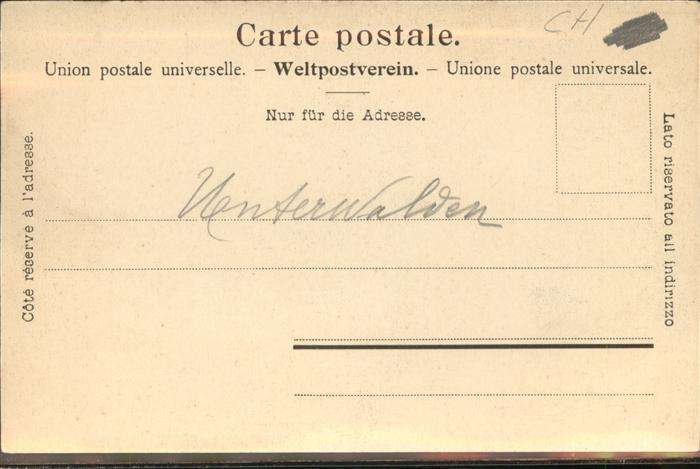 CH
Carte postale.
Union postale universelle. – Weltpostverein. – Unione postale universale.
Nur für die Adresse.
Côté réservé à l'adresse.
Lato riservato all indirizzo
Unterwalden